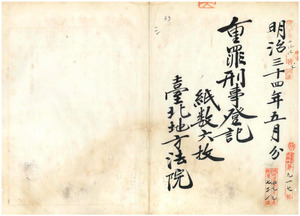 明治三十四年五月分
重罪刑事登記
紙数六枚
臺北地方法院